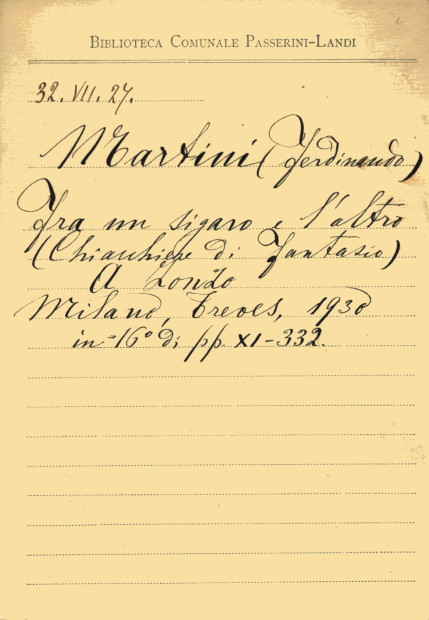 BIBLIOTECA COMUNALE PASSERINI-LANDI
32. VII. 27.
Martini (Ferdinando)
Fra un sigaro e l'altro
(Chiacchiere di Fantasio)
A Lonzo
Milano, Treves, 1930
in-16° di pp XI-332.